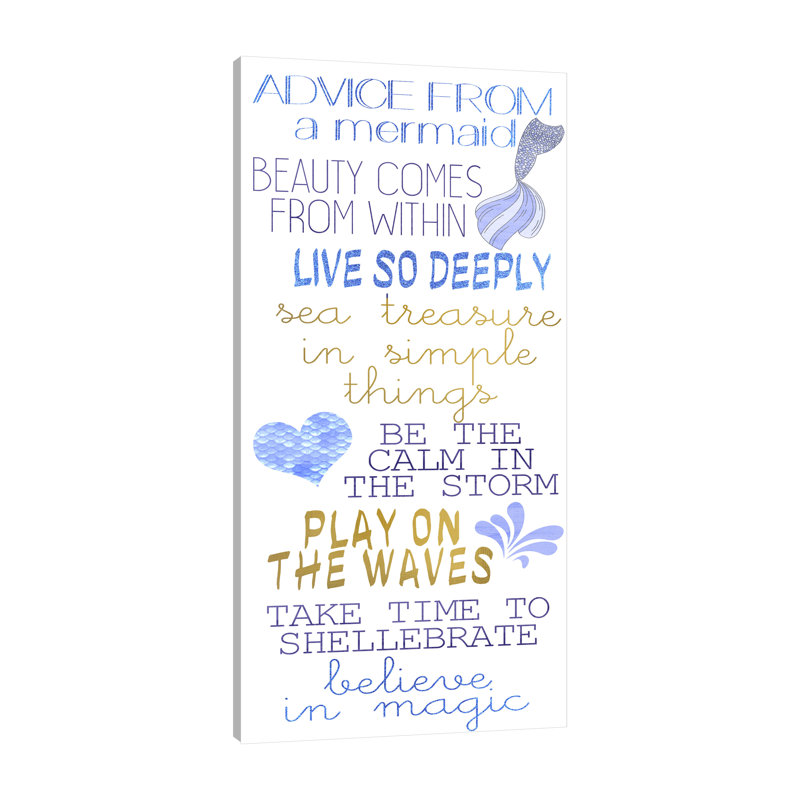 ADVICE FROM
a mermaid
BEAUTY COMES
FROM WITHIN
LIVE SO DEEPLY
sea treasure
in simple
things
BE THE
CALM IN
THE STORM
PLAY ON
THE WAVES
TAKE TIME TO
SHELLEBRATE
believe
in magic